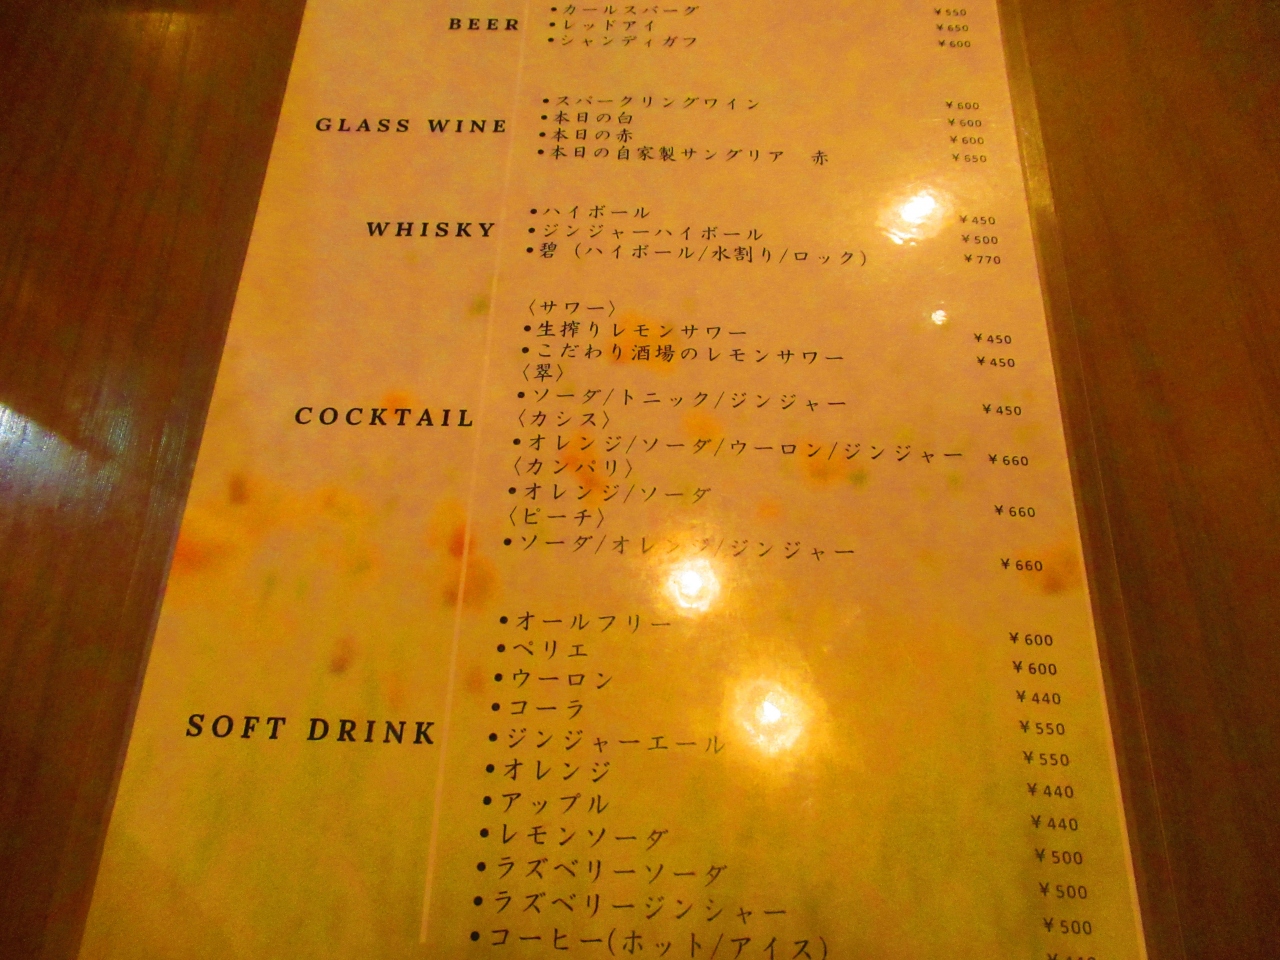 BEER
•カールスバーグ ¥550
•レッドアイ ¥650
•シャンディガフ ¥600
GLASS WINE
•スパークリングワイン ¥600
•本日の白 ¥600
•本日の赤 ¥600
•本日の自家製サングリア 赤 ¥650
WHISKY
•ハイボール ¥450
•ジンジャーハイボール ¥500
•碧（ハイボール/水割り/ロック） ¥770
COCKTAIL
〈サワー〉
•生搾りレモンサワー ¥450
•こだわり酒場のレモンサワー ¥450
〈翠〉
•ソーダ/トニック/ジンジャー ¥450
〈カシス〉
•オレンジ/ソーダ/ウーロン/ジンジャー ¥660
〈カンパリ〉
•オレンジ/ソーダ ¥660
〈ピーチ〉
•ソーダ/オレンジ/ジンジャー ¥660
SOFT DRINK
•オールフリー ¥600
•ペリエ ¥600
•ウーロン ¥440
•コーラ ¥550
•ジンジャーエール ¥550
•オレンジ ¥440
•アップル ¥440
•レモンソーダ ¥500
•ラズベリーソーダ ¥500
•ラズベリージンシャー ¥500
•コーヒー(ホット/アイス)